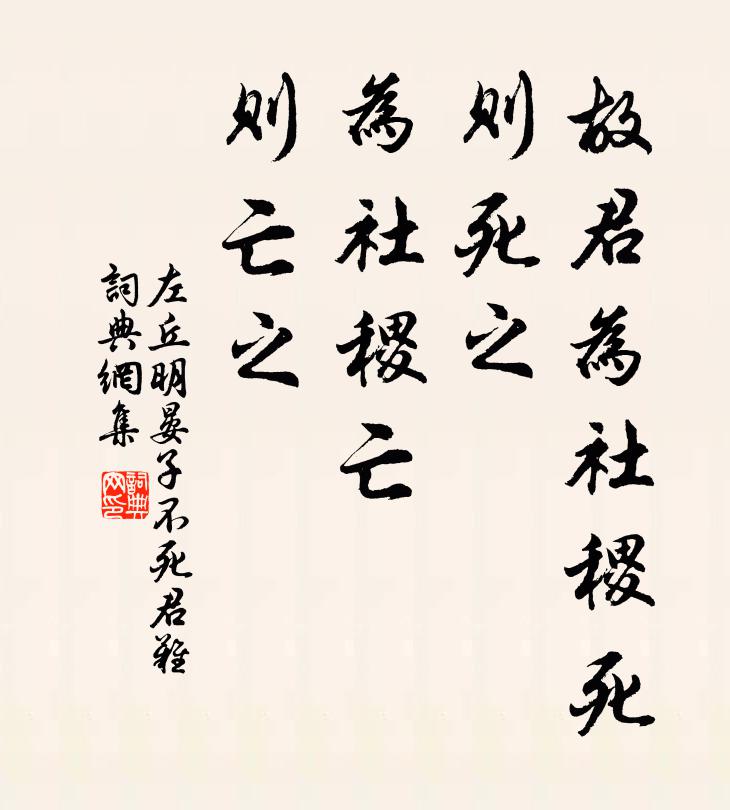 故君為社稷死
則死之
為社稷亡
則亡之
左丘明晏子不死君難
詞典網集
詞典網印